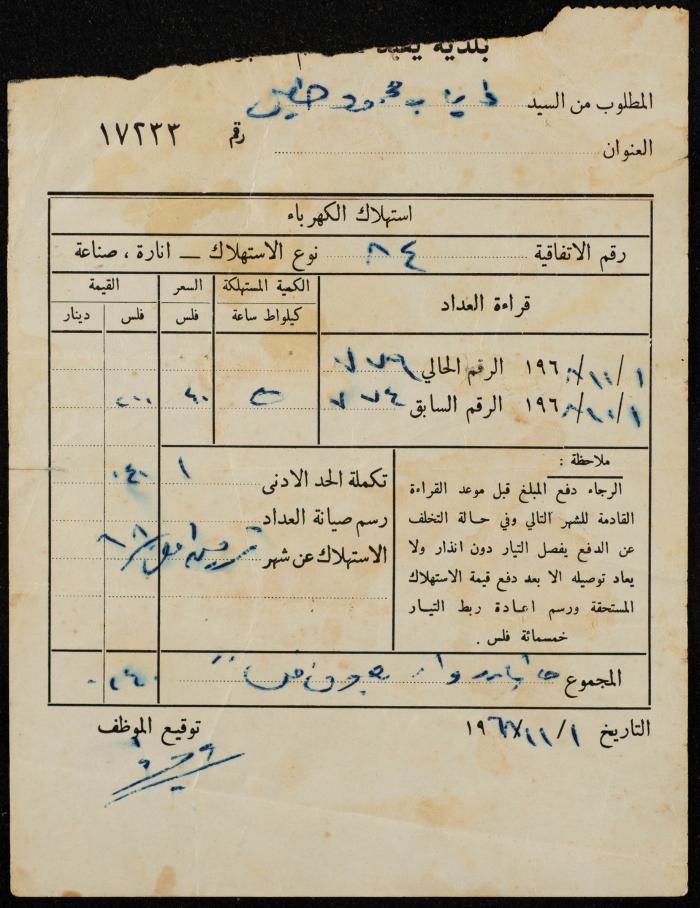 بلدية يعبد
المطلوب من السيد ذياب محمود
العنوان
رقم ١٧٢٣٣
استهلاك الكهرباء
رقم الاتفاقية ٨٤ نوع الاستهلاك — انارة ، صناعة
قراءة العداد
الكمية المستهلكة
كيلواط ساعة
السعر
فلس
القيمة
فلس دينار
١/١٠/ ١٩٦ الرقم الحالي ٧٧٩
١/١٠/ ١٩٦ الرقم السابق ٧٧٤ ٥ ٤٠ ٢٠٠
تكملة الحد الادنى ١ ٠٤٠
رسم صيانة العداد
الاستهلاك عن شهر
ملاحظة :
الرجاء دفع المبلغ قبل موعد القراءة
القادمة للشهر التالي وفي حالة التخلف
عن الدفع يفصل التيار دون انذار ولا
يعاد توصيله الا بعد دفع قيمة الاستهلاك
المستحقة ورسم اعادة ربط التيار
خمسمائة فلس .
المجموع ٢٤٠
التاريخ ١/١١/ ١٩٦٧
توقيع الموظف